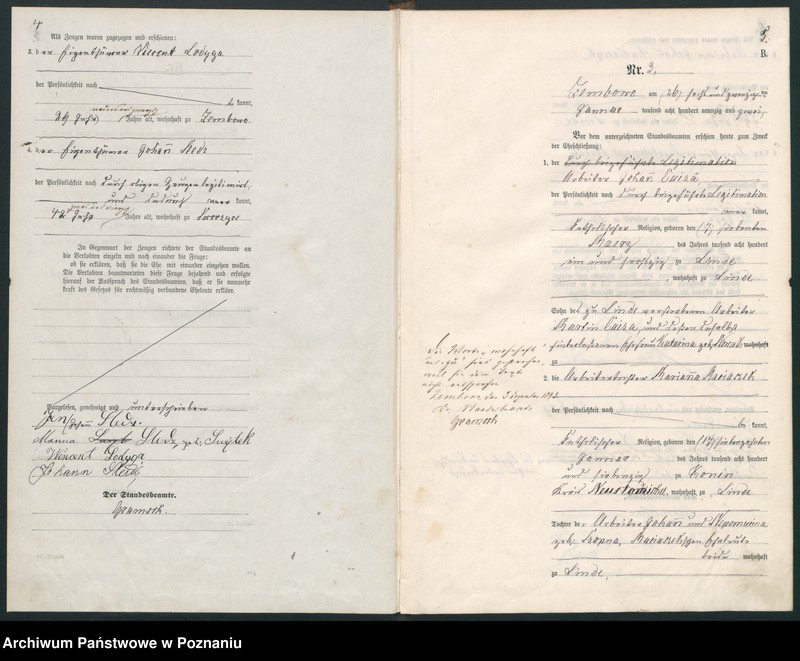 4
Als Zeugen waren zugezogen und erschienen:
3. der Eigenthümer Vincent Ledyga
der Persönlichkeit nach
be kannt,
29 Jahr Jahre alt, wohnhaft zu Zembowo
4. der Eigenthümer Johann Sledz
der Persönlichkeit nach durch obigen Zeugen legitimirt,
und dadurch aner kannt,
42 Jahr Jahre alt, wohnhaft zu
In Gegenwart der Zeugen richtete der Standesbeamte an
die Verlobten einzeln und nach einander die Frage:
ob sie erklären, daß sie die Ehe mit einander eingehen wollen.
Die Verlobten beantworteten diese Frage bejahend und erfolgte
hierauf der Ausspruch des Standesbeamten, daß er sie nunmehr
kraft des Gesetzes für rechtmäßig verbundene Eheleute erkläre.
Vorgelesen, genehmigt und unterschrieben
Jan Sledz.
Sledz, geb.
Wincent Ledyga
Johann Sledz
Der Standesbeamte.
Gramsch.
5.
B.
Nr. 3.
Zembowo am (26) sechs und zwanzigsten
Januar tausend acht hundert neunzig und zwei,
Vor dem unterzeichneten Standesbeamten erschien heute zum Zweck
der Eheschließung:
1. der durch beigeführte Legitimation
Arbeiter Johann
der Persönlichkeit nach durch beigeführte Legitimation
aner kannt,
katholischer Religion, geboren den (7) siebenten
Maerz des Jahres tausend acht hundert
ein und sechszig zu Linde
, wohnhaft zu Linde
Sohn des zu Linde verstorbenen Arbeiter
Martin und dessen daselbst
hinterlassenen Ehefrau Katarina geb. wohnhaft
zu
2. die Arbeitertochter Marianna
der Persönlichkeit nach
be kannt,
katholischer Religion, geboren den (17) siebenzehnten
Januar des Jahres tausend acht hundert
und siebenzig zu Konin
Kreis Neutomischel, wohnhaft zu Linde
Tochter der Arbeiter Johann und Nepomucena
geb. Eheleute
beide wohnhaft
zu Linde,
Zembowo, den
Der Standesbeamte
Gramsch
Archiwum Państwowe w Poznaniu